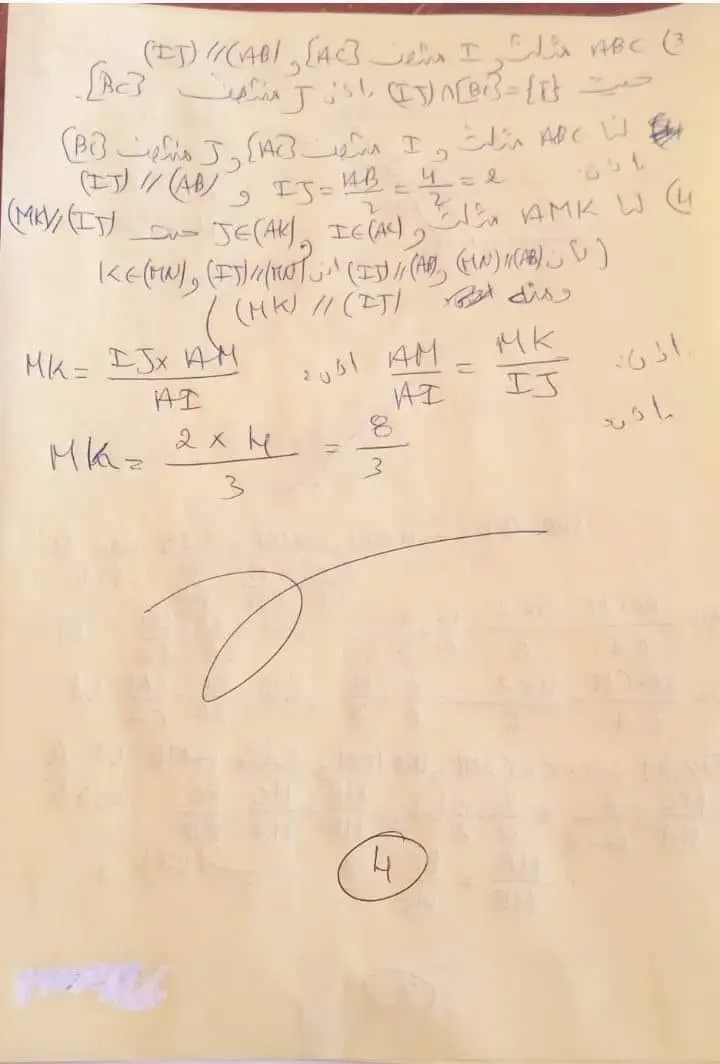 3) ABC مثلث و I منتصف [AC] و (IJ) // (AB)
حيث (IJ)∩[BC]={J} إذن J منتصف [BC].
لنا ABC مثلث و I منتصف [AC] و J منتصف [BC]
إذن: IJ = AB/2 = 4/2 = 2 و (IJ) // (AB)
4) لنا AMK مثلث و I∈(AC) و J∈(AK) حيث (MK)//(IJ)
(لأن (MN)//(AB) و (IJ)//(AB) إذن (IJ)//(MN) و K∈(MN)
ومنه (MK) // (IJ)
إذن: AM/AI = MK/IJ إذن: MK = IJ x AM/AI
إذن MK = 2 x 4/3 = 8/3
4